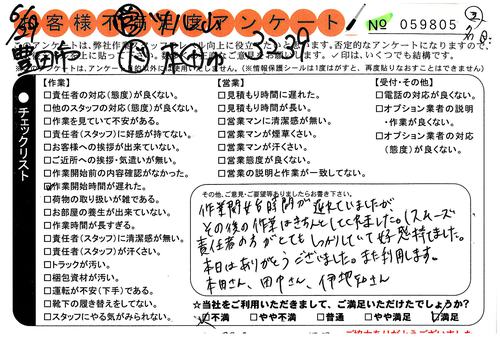 お客様不満足度アンケート
№ 059805
のアンケートは、弊社作業スタッフのスキル向上に役立てたいと思います。否定的なアンケートになりますので、
チェックリスト
【作業】
□責任者の対応(態度)が良くない。
□他のスタッフの対応(態度)が良くない。
□作業を見ていて不安がある。
□責任者(スタッフ)に好感が持てない。
□お客様への挨拶が出来ていない。
□ご近所への挨拶・気遣いが無い。
□作業開始前の内容確認がなかった。
☑作業開始時間が遅れた。
□荷物の取り扱いが雑である。
□お部屋の養生が出来ていない。
□作業時間が長すぎる。
□責任者(スタッフ)に清潔感が無い。
□責任者(スタッフ)が汗くさい。
□トラックが汚い。
□梱包資材が汚い。
□運転が不安(下手)である。
□靴下の履き替えをしてない。
□スタッフにやる気がみられない。
【営業】
□見積もり時間に遅れた。
□見積もり時間が長い。
□営業マンに清潔感が無い。
□営業マンが煙草くさい。
□営業マンが汗くさい。
□営業態度が良くない。
□営業の説明と作業が一致してない。
【受付・その他】
□電話の対応が良くない。
□オプション業者の説明
・作業が良くない。
□オプション業者の対応
(態度)が良くない。
その他、ご意見・ご要望等ありましたらお書き下さい。
作業開始時間が遅れていましたが
その後の作業はきちんとしてくれました。(スムーズ
責任者の方がとてもしっかりしていて好感持てました。
本日はありがとうございました。また利用します。
本田さん、田中さん、伊地知さん
☆当社をご利用いただきまして、ご満足いただけたでしょうか?
□不満 □やや不満 □普通 □やや満足 ☑満足
ご協力ありがとうございました